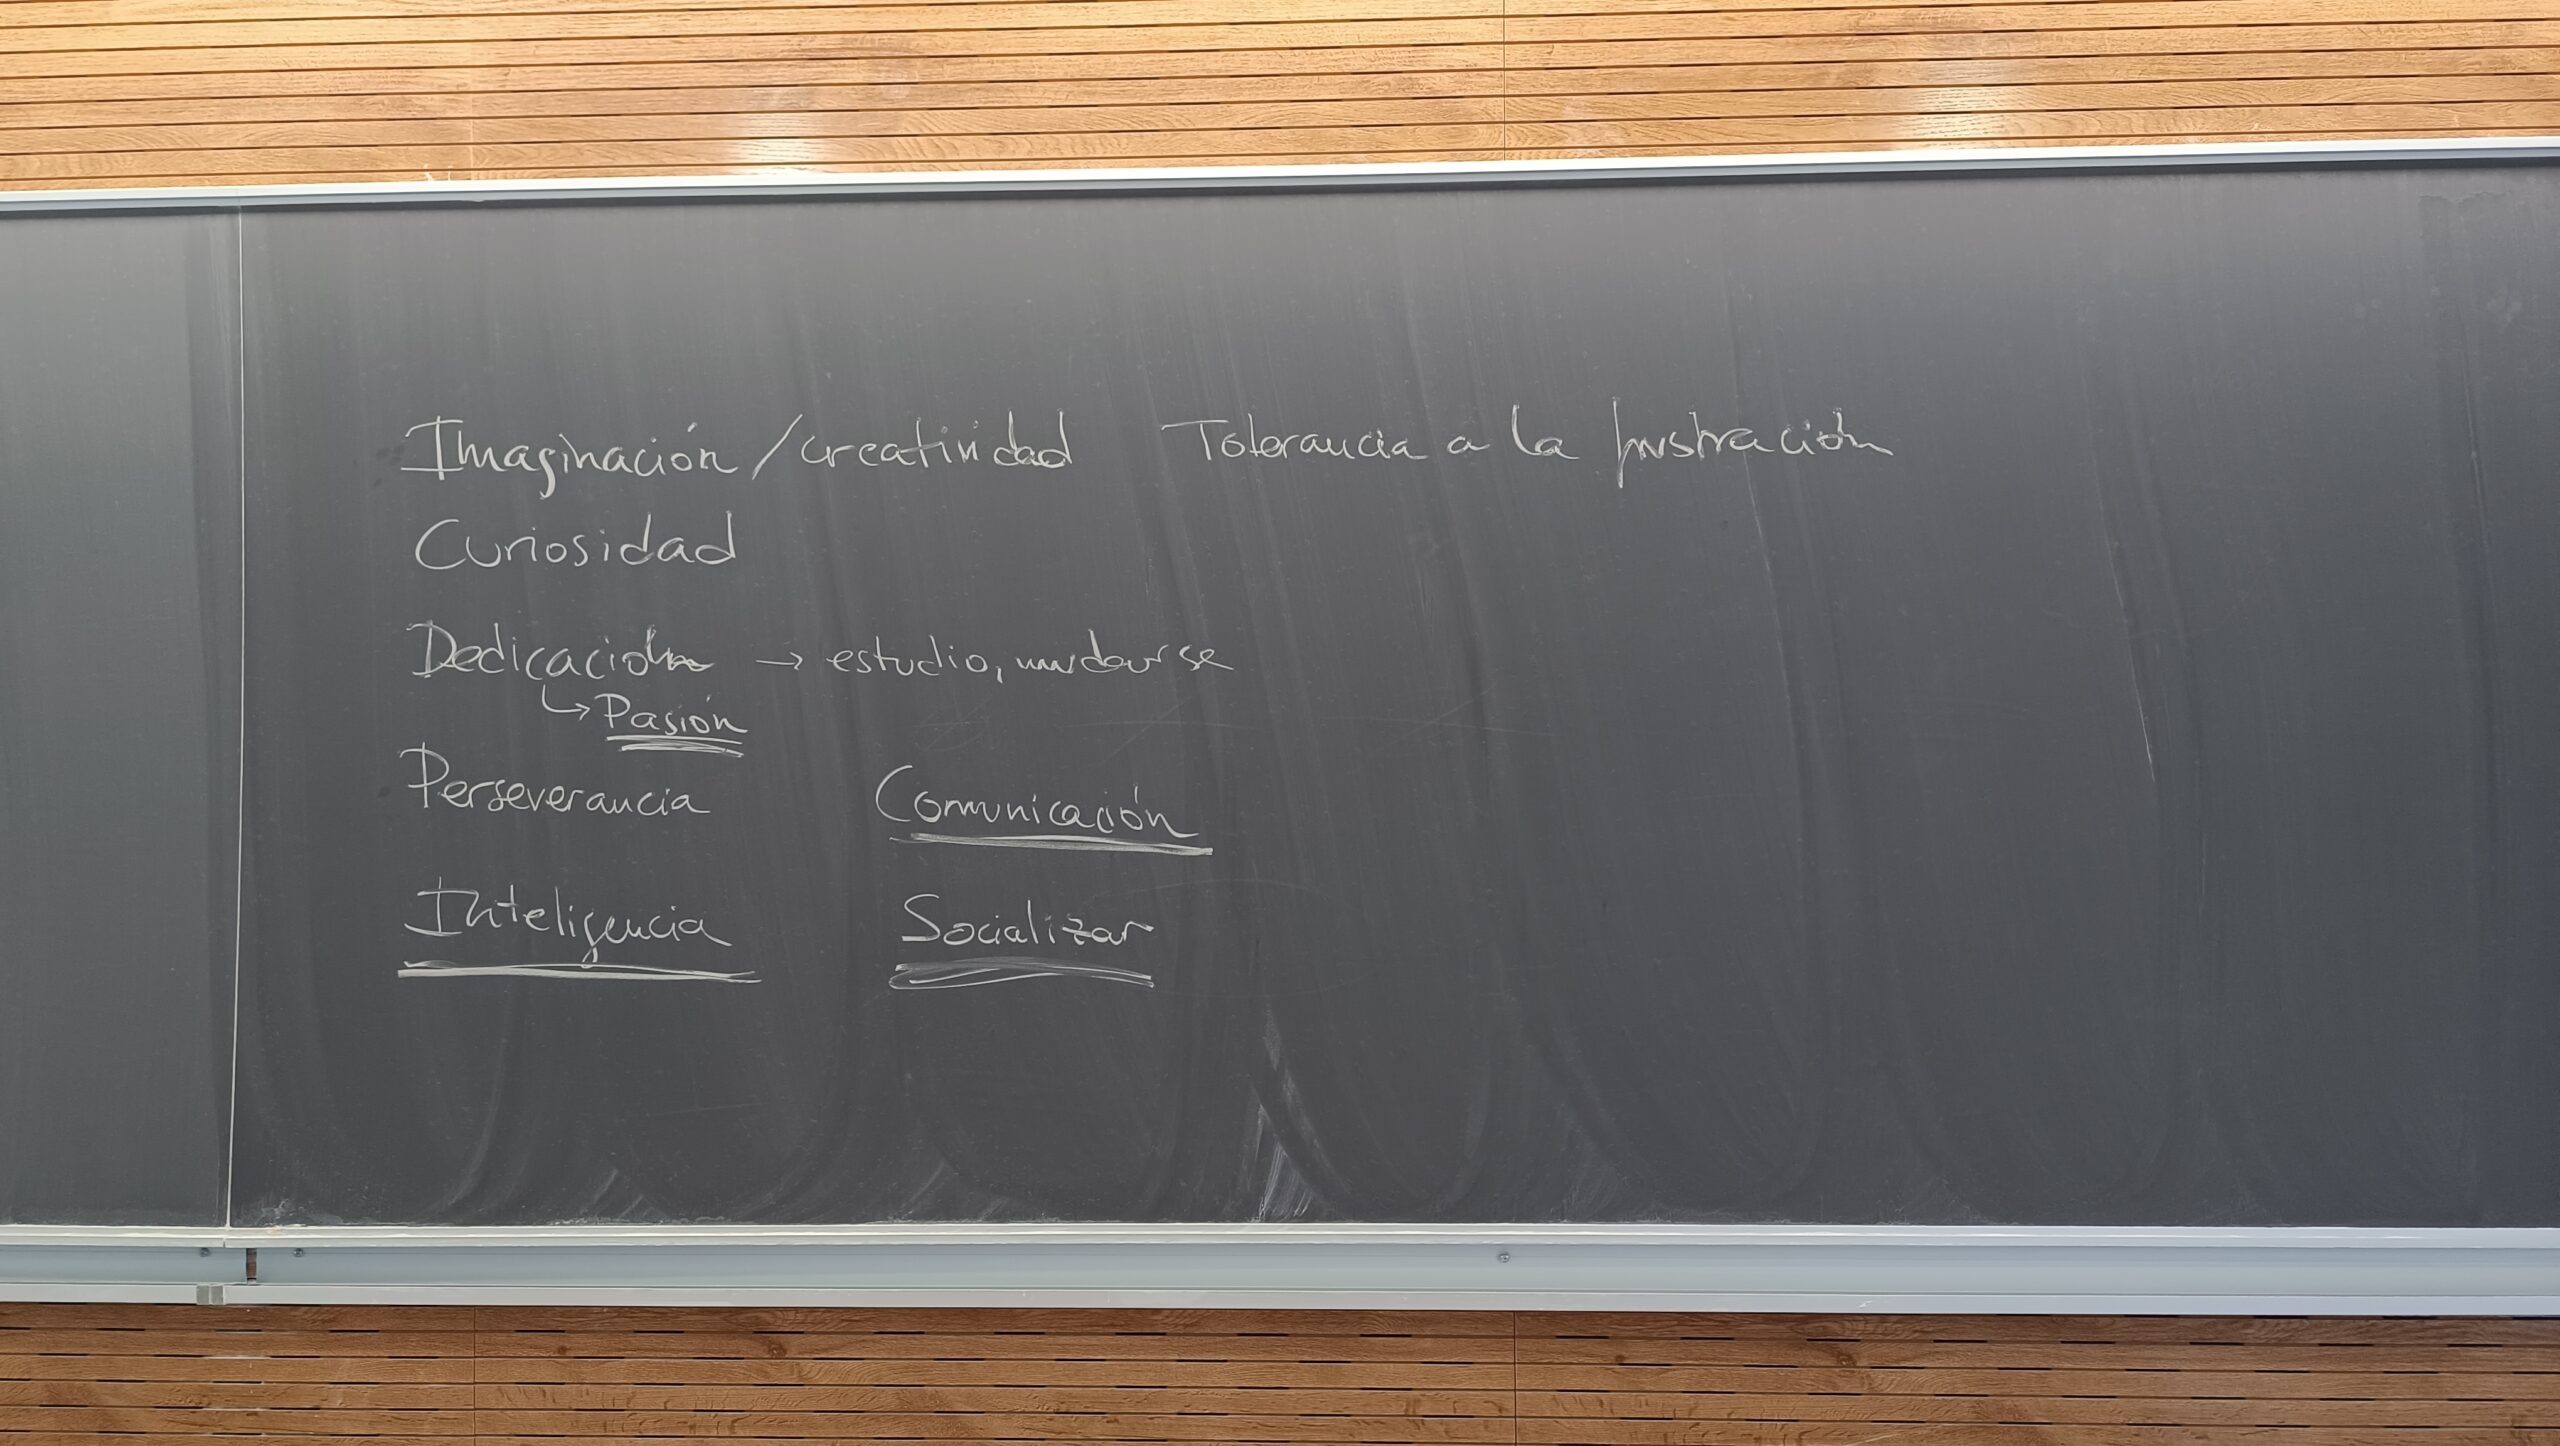 Imaginación/creatividad Tolerancia a la frustración
Curiosidad
Dedicación → estudio, mudarse
↳ Pasión
Perseverancia Comunicación
Inteligencia Socializar